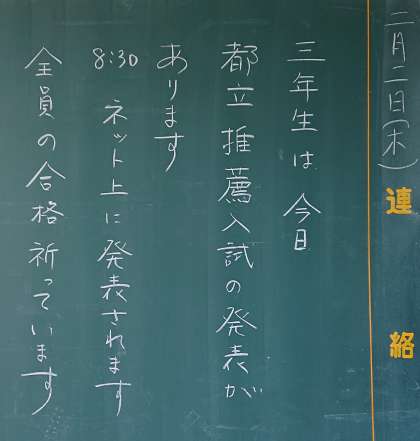 二月一日(木)
連絡
三年生は今日
都立推薦入試の発表が
あります
8:30 ネット上に発表されます
全員の合格祈っています